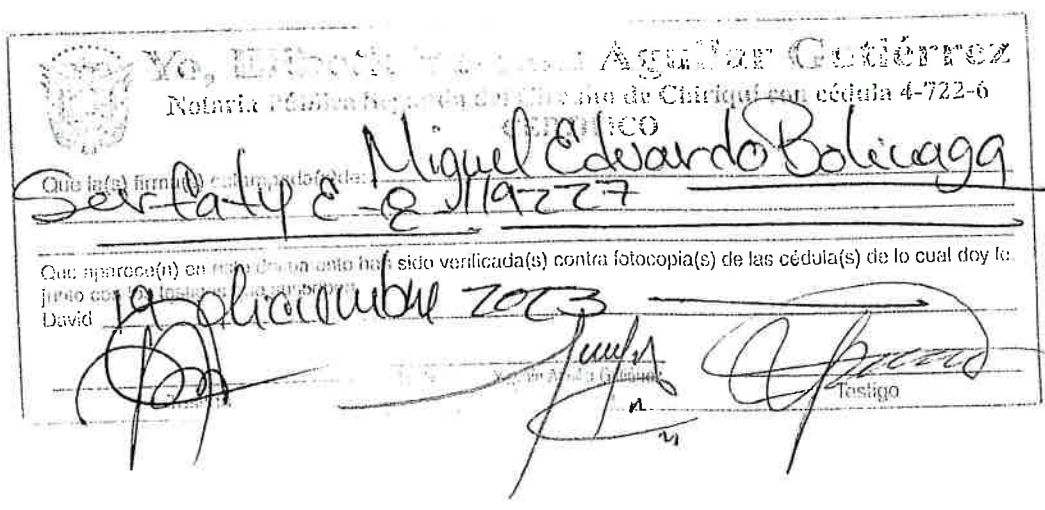 Yo, Aguilar Gutiérrez
Notaria Pública Segunda del Circuito de Chiriquí con cédula 4-722-6
CERTIFICO
Que la(s) firma(s) estampada(s) de: Miguel Eduardo Bolicaga
E-8-119227
Que aparece(n) en este documento han sido verificada(s) contra fotocopia(s) de las cédula(s) de lo cual doy fe.
junto con los testigos que suscriben
David 19 diciembre 2023
Testigo